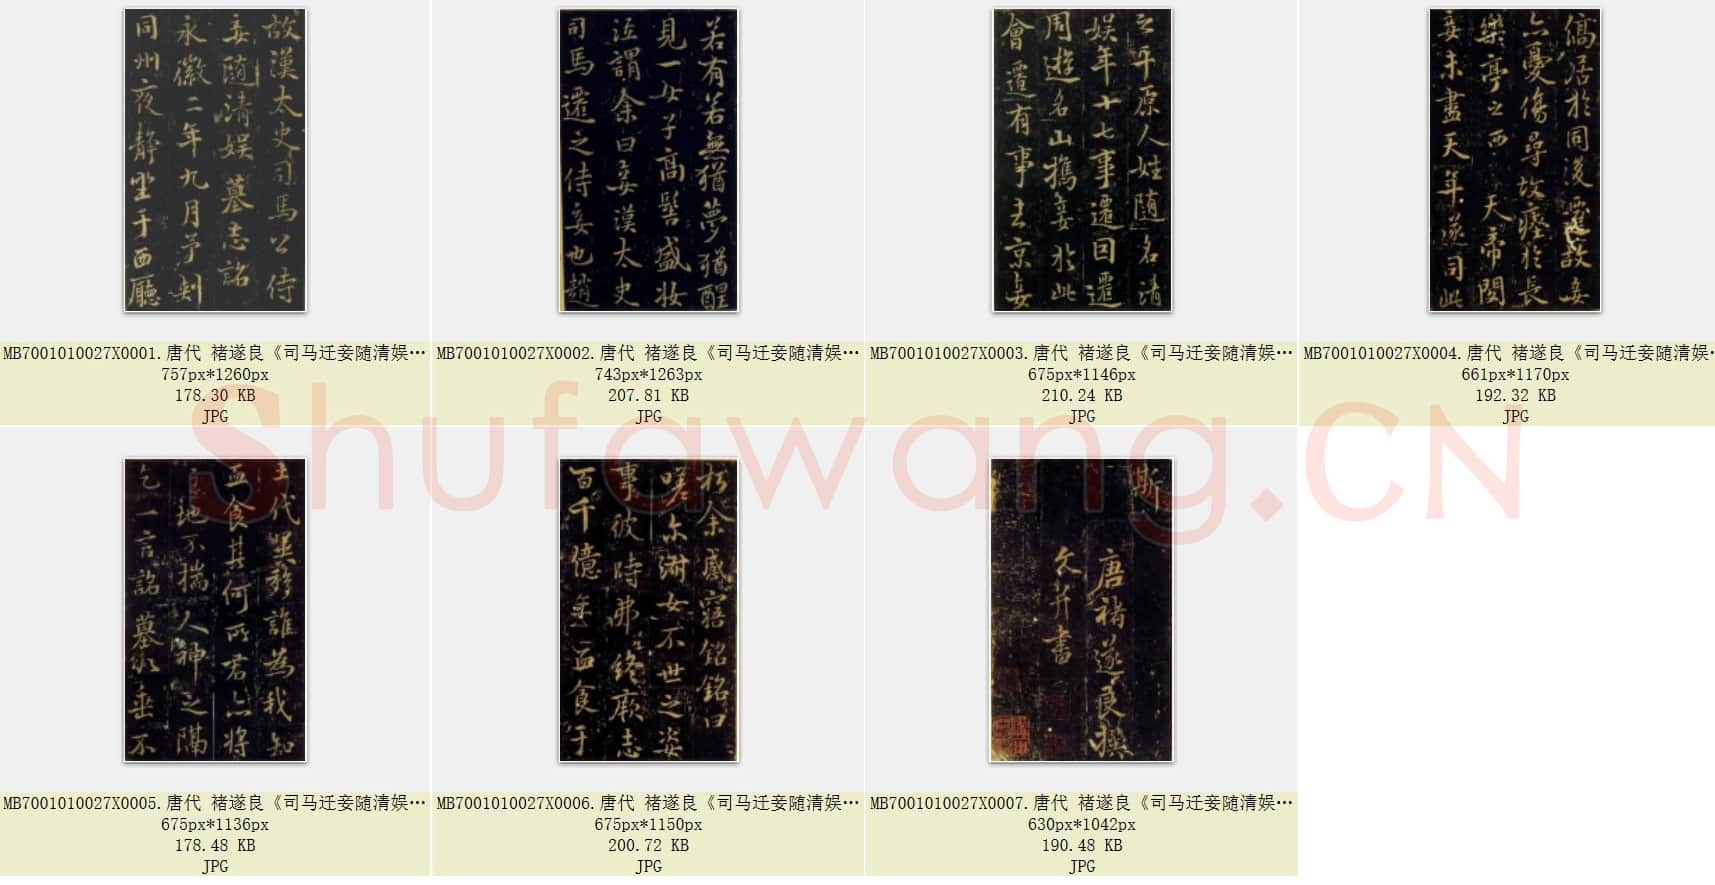 故漢太史司馬公侍
妾随清娱墓志銘
永徽二年九月予刺
同州夜静坐于西廳
MB7001010027X0001.唐代 褚遂良《司马迁妾随清娱…
757px*1260px
178.30 KB
JPG
若有若無猶夢猶醒
見一女子高髻盛妝
泣謂余曰妾漢太史
司馬遷之侍妾也趙
MB7001010027X0002.唐代 褚遂良《司马迁妾随清娱…
743px*1263px
207.81 KB
JPG
之平原人姓随名清
娱年十七事遷因遷
周遊名山攜妾於此
會遷有事去京妾
MB7001010027X0003.唐代 褚遂良《司马迁妾随清娱…
675px*1146px
210.24 KB
JPG
僑居於同後遷故妾
亦憂傷尋故瘞於長
樂亭之西天帝閔
妾未盡天年遂司此
MB7001010027X0004.唐代 褚遂良《司马迁妾随清娱…
661px*1170px
192.32 KB
JPG
土代異移誰為我知
血食其何所君亦將
主地不揣人神之隔
乞一言銘墓以垂不
MB7001010027X0005.唐代 褚遂良《司马迁妾随清娱…
675px*1136px
178.48 KB
JPG
朽余感寤銘銘曰
嗟尔淑女不世之姿
事彼時弗終厥志
百千億年血食于
MB7001010027X0006.唐代 褚遂良《司马迁妾随清娱…
675px*1150px
200.72 KB
JPG
斯
唐褚遂良撰
文并書
MB7001010027X0007.唐代 褚遂良《司马迁妾随清娱…
630px*1042px
190.48 KB
JPG
Shufawang.CN